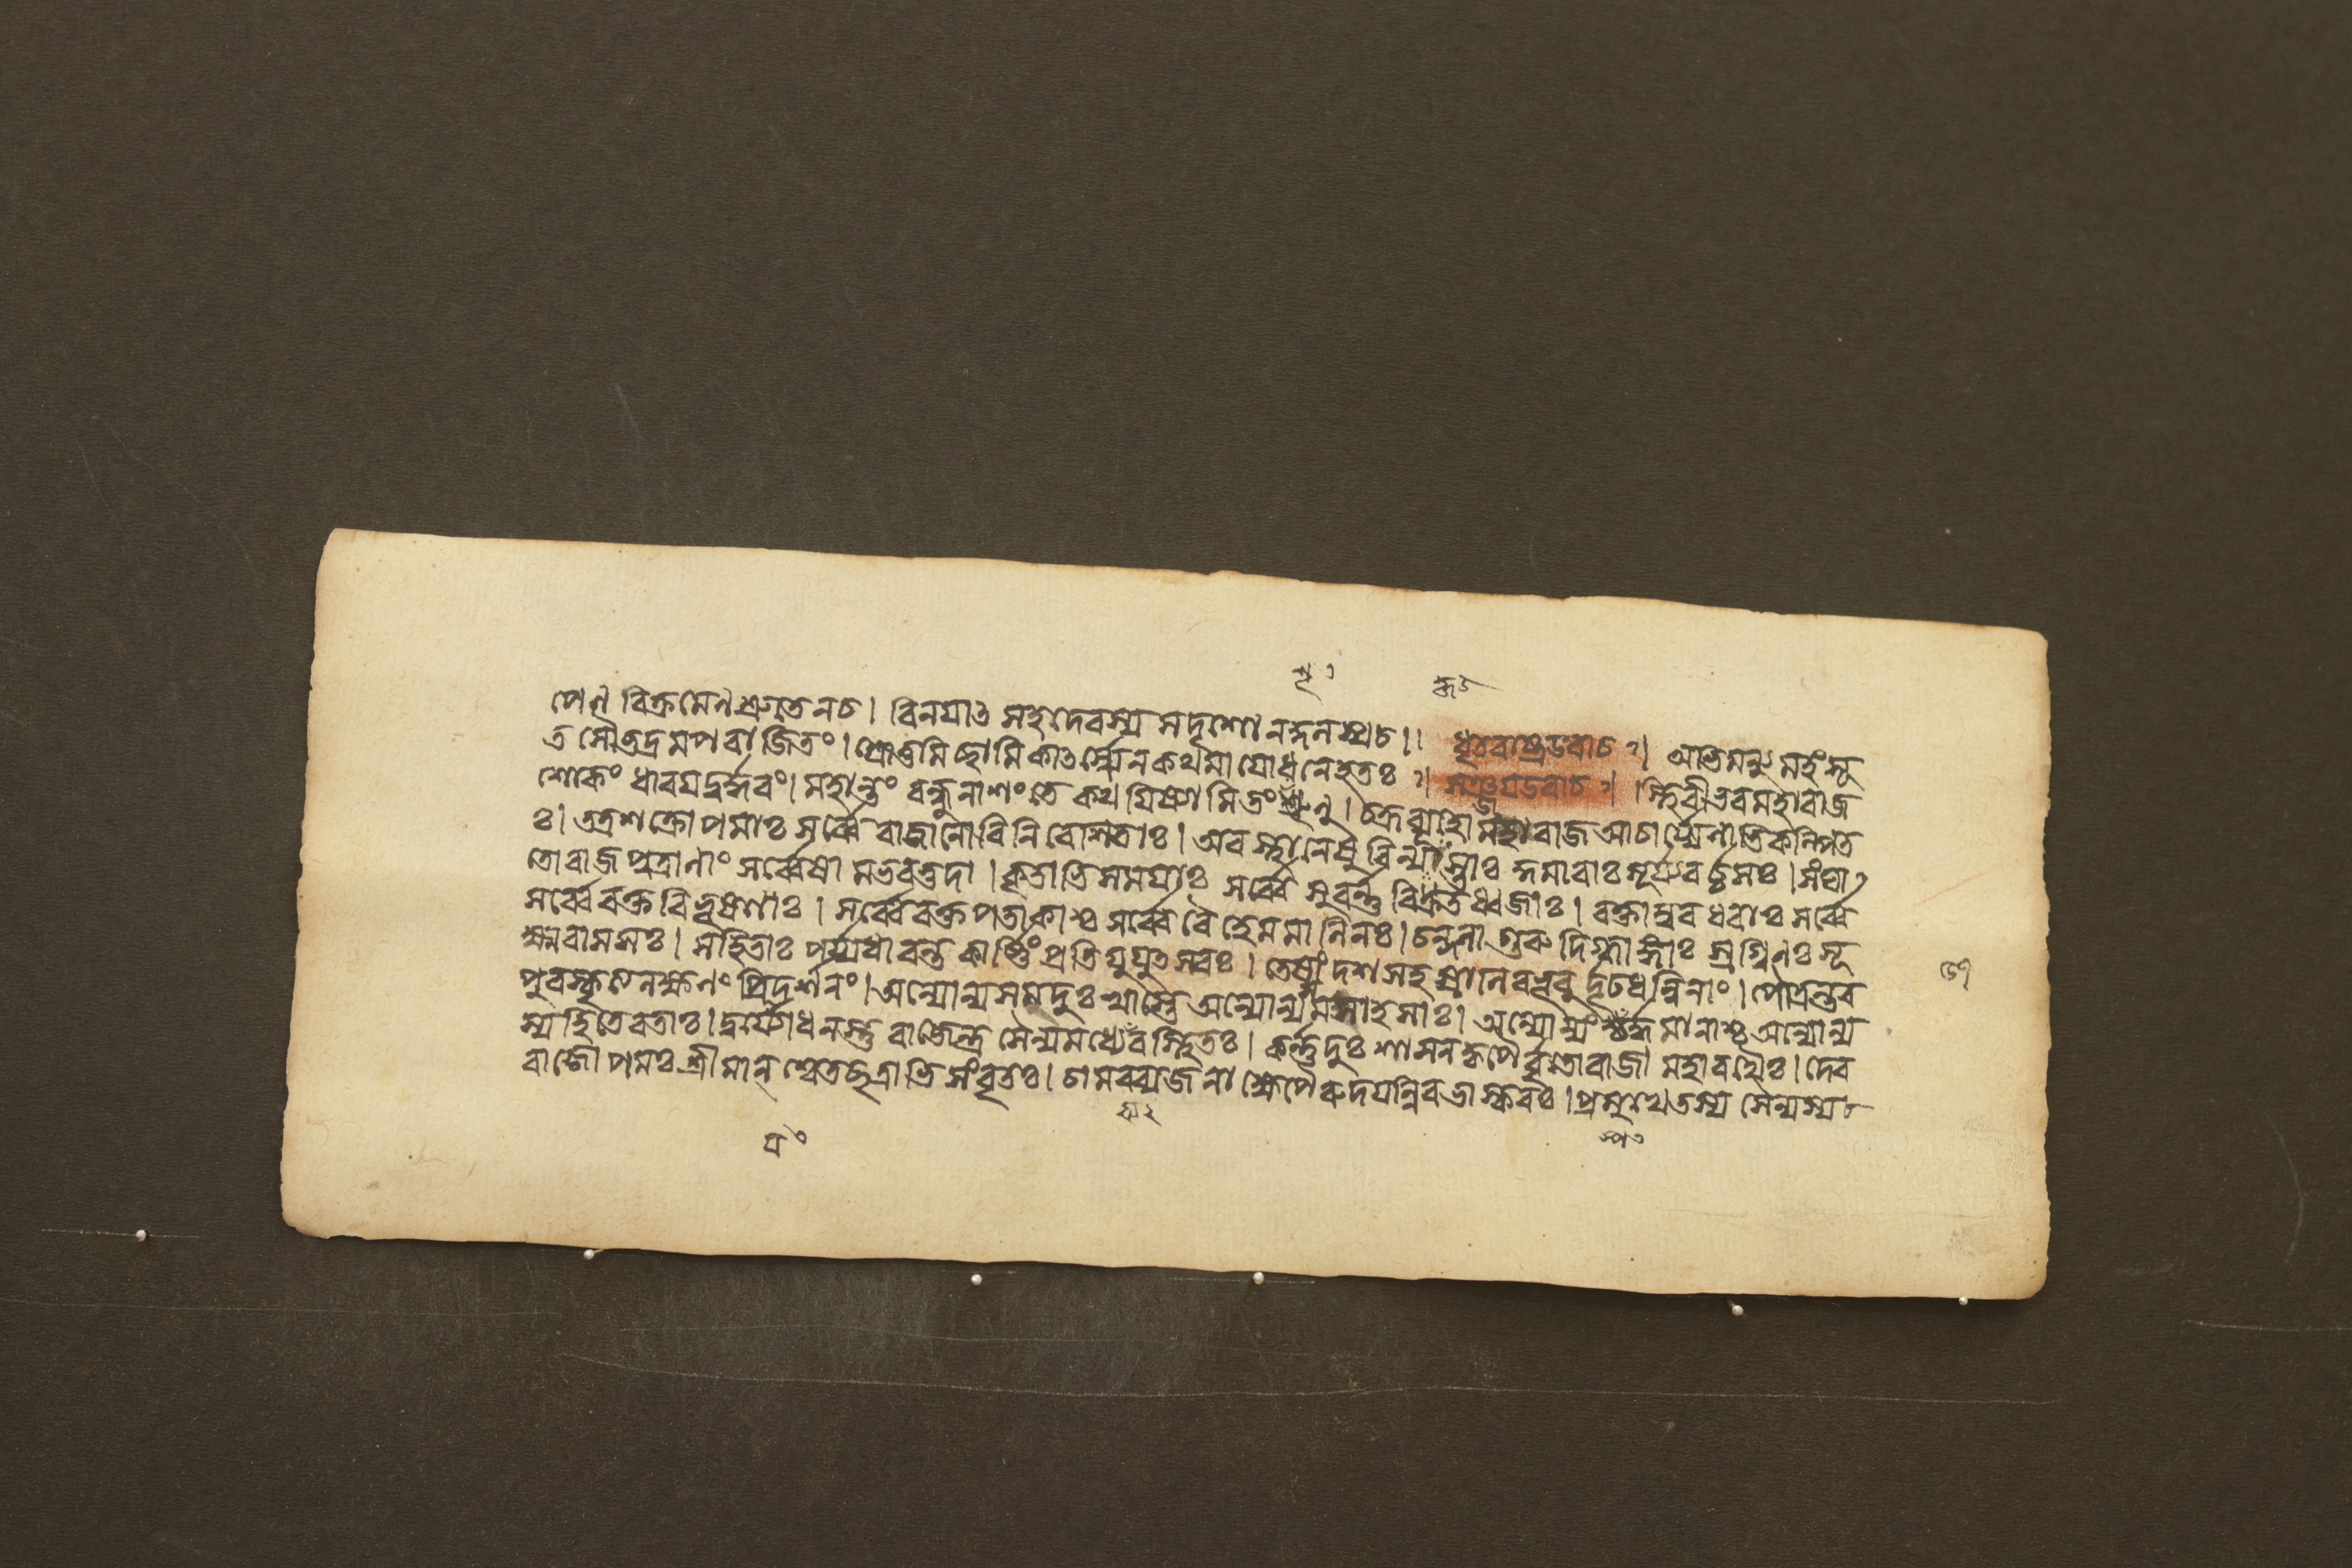 পেণ বিক্রমেণ শ্রুতেন চ। বিনয়াৎ সহদেবস্য সদৃশো নকুলস্য চ।। ধৃতরাষ্ট্র উবাচ?। অভিমন্যু মহং সূ
ত সৌভদ্রমপরাজিতং। শ্রোতুমিচ্ছামি কাৎর্স্ন্যেন কথমাযোধনে হতঃ?। সঞ্জয় উবাচ?। স্থিরীভব মহারাজ
শোকং ধারয় দুর্দ্ধরং। মহান্তং বন্ধুনাশং তে কথয়িষ্যামি তং শৃনু। চক্রব্যূহো মহারাজ আচার্য্যেনাভিকল্পিত
ঃ। তত্র শক্রোপমাঃ সর্ব্বে রাজানো বিনিবেশিতাঃ। অরস্থানেষু বিন্যস্তাঃ কুমারাঃ সূর্য্যবর্চ্চসঃ। সংঘা
তো রাজপুত্রানাং সর্ব্বেষামভবত্তদা। কৃতাভিসময়াঃ সর্ব্বে সুবর্ণ্ণ বিকৃতধ্বজাঃ। রক্তাম্বরধরাঃ সর্ব্বে
সর্ব্বে রক্তবিভূষণাঃ। সর্ব্বে রক্তপতাকাশ্চ সর্ব্বে বৈ হেমমালিনঃ। চন্দনাগুরুদিগ্ধাঙ্গাঃ স্রগ্বিনঃ সূ
ক্ষ্মবাসসঃ। সহিতাঃ পর্য্যধাবন্ত কার্ষ্ণিং প্রতি যুযুৎসবঃ। তেষাং দশসহস্রাণি বভূবুর্দৃঢধন্বিনাং। পৌত্রন্তব
পুরস্কৃত্য লক্ষ্মণং প্রিয়দর্শনং। অন্যোন্যসমদুঃখাস্তে অন্যোন্যসমসাহসাঃ। অন্যোন্যং স্পর্দ্ধমানাশ্চ অন্যোন্য
স্য হিতে রতাঃ। দুর্য্যোধনস্তু রাজেন্দ্র সৈন্যমধ্যে ব্যবস্থিতঃ। কর্ণ্ণদুঃশাসনকৃপৈর্বৃতো রাজা মহারথৈঃ। দেব
রাজোপমঃ শ্রীমান্ শ্বেতছত্রাভিসংবৃতঃ। চামরব্যজনাক্ষেপৈরুদয়ন্নিব ভাস্করঃ। প্রমুখে তস্য সৈন্যস্য চ